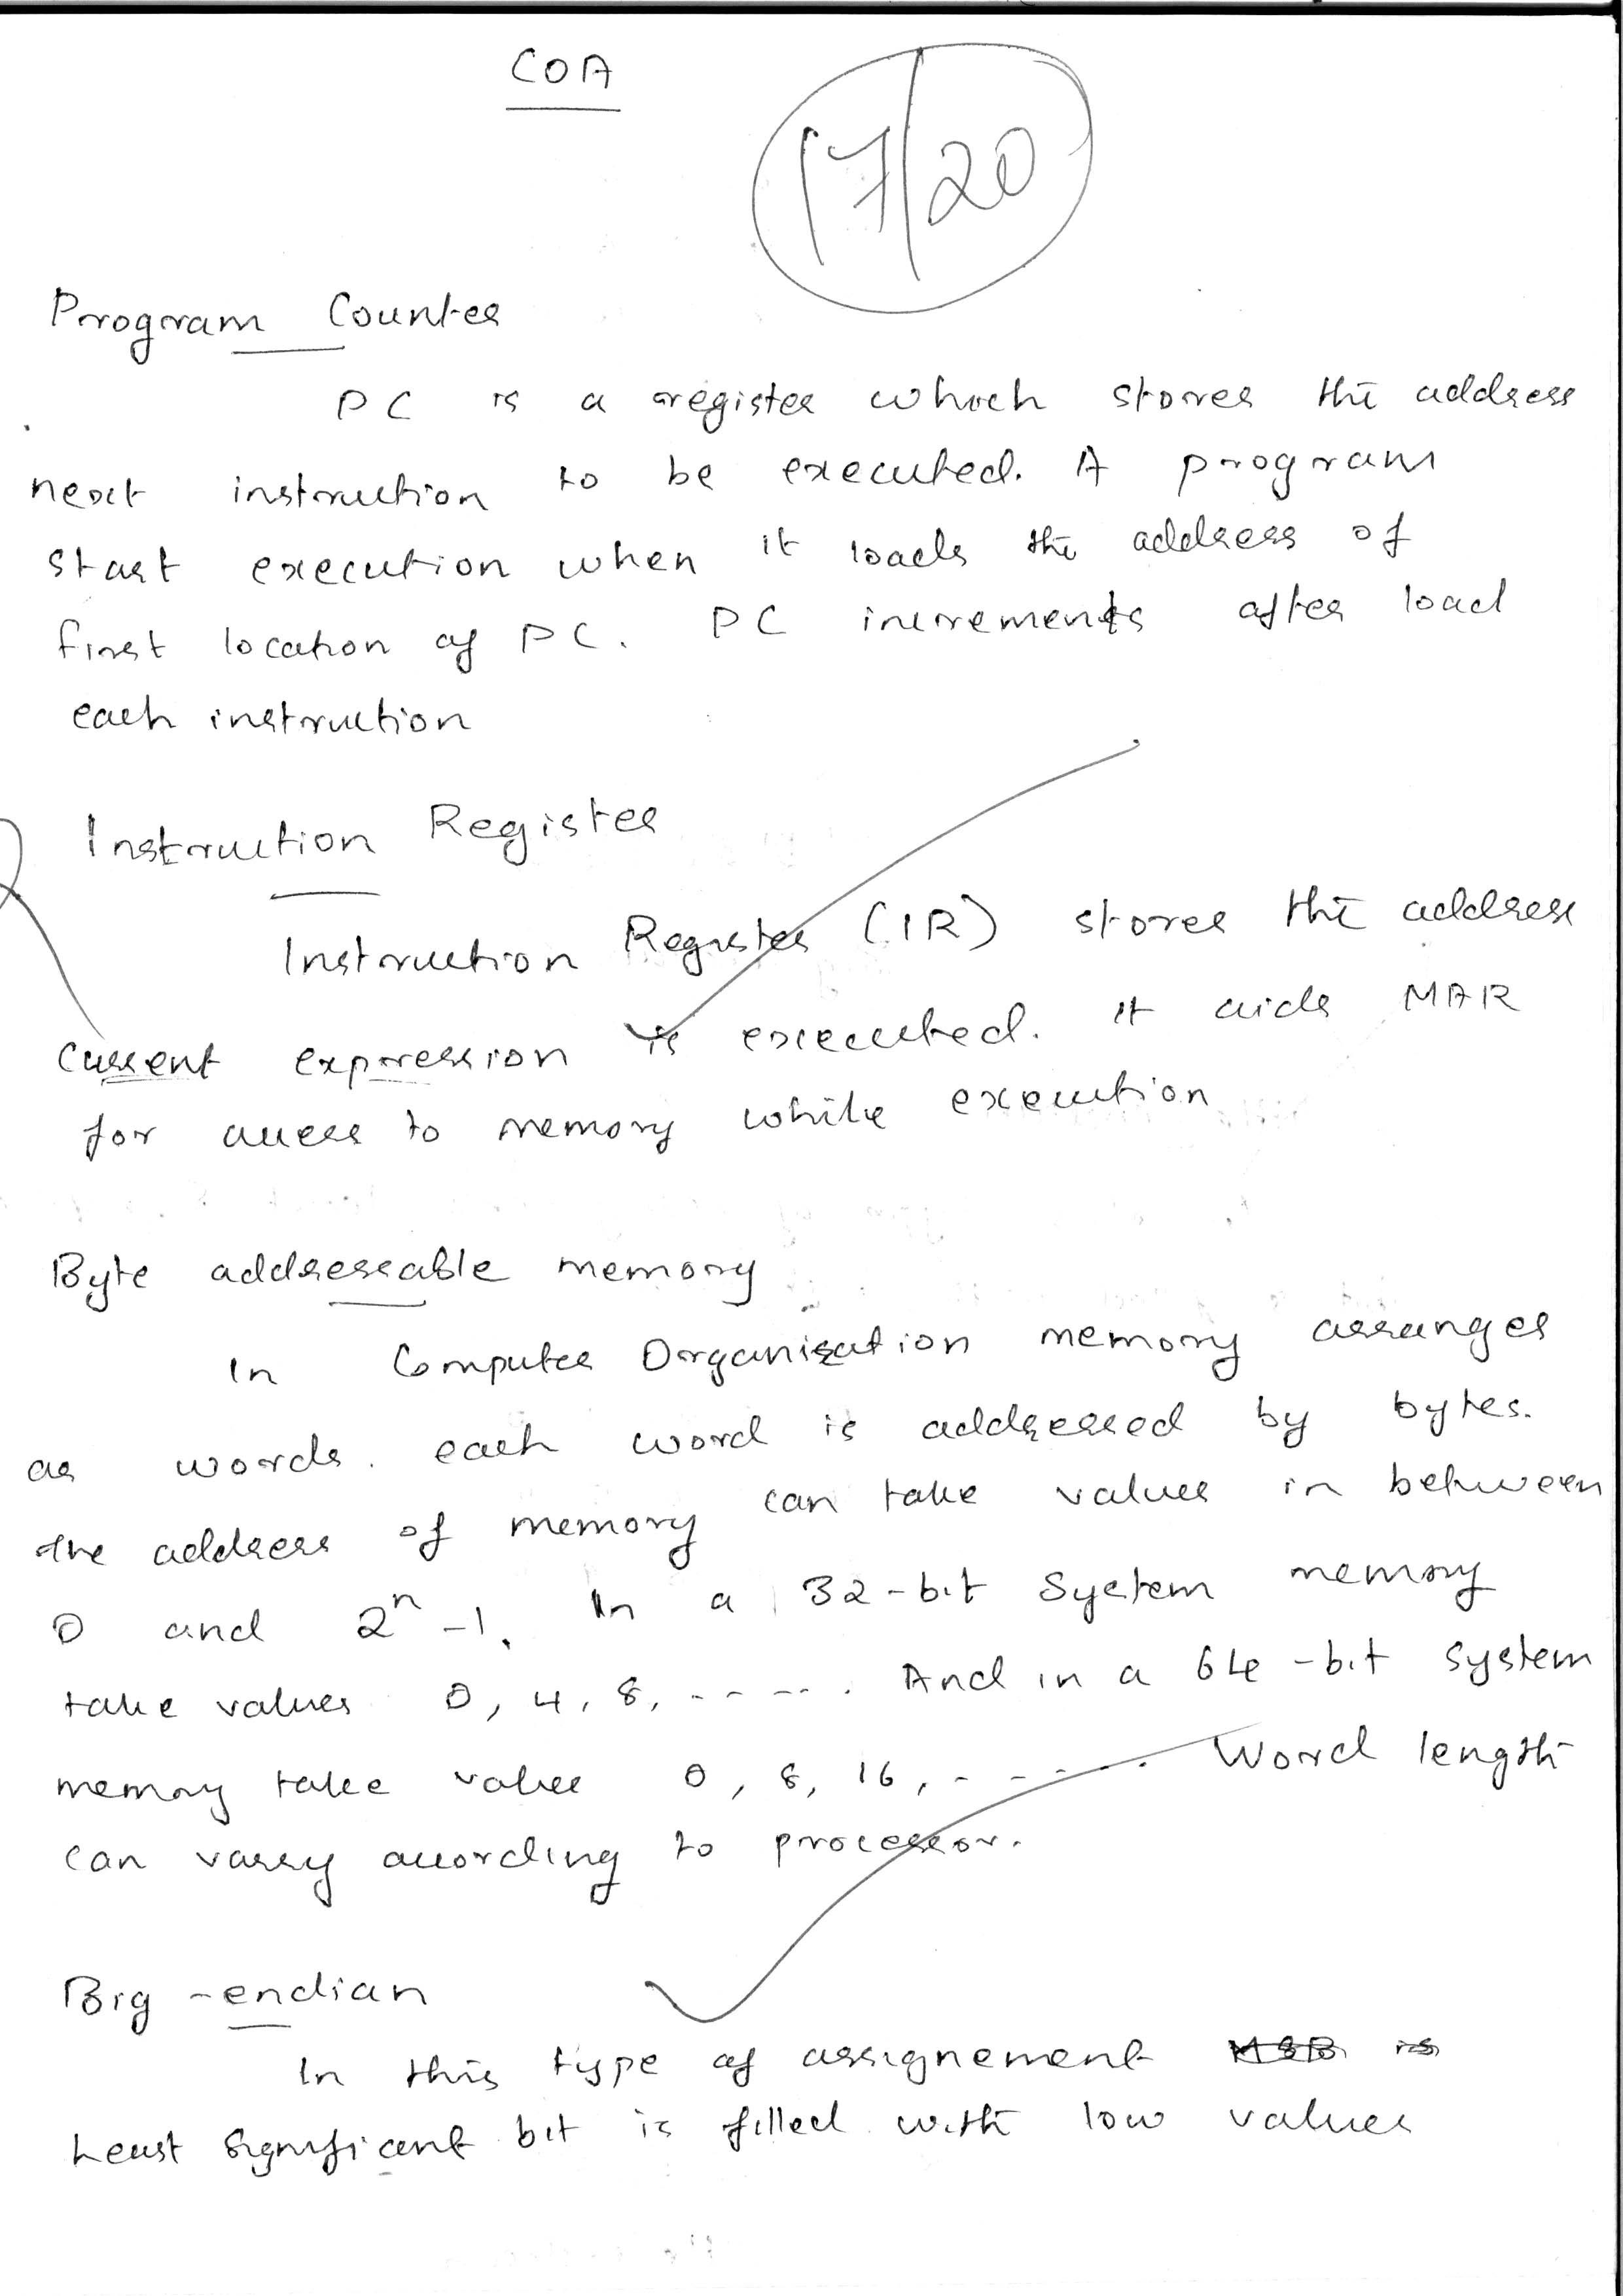 COA
17/20
Program Counter
PC is a register which stores the address
next instruction to be executed. A program
start execution when it loads the address of
first location of PC. PC increments after load
each instruction
Instruction Register
Instruction Register (IR) stores the address
current expression is executed. It aids MAR
for access to memory while execution
Byte addressable memory
In Computer Organisation memory arranges
as words. each word is addressed by bytes.
the address of memory can take values in between
0 and 2^n -1. In a 32-bit System memory
take values 0, 4, 8, ----- . And in a 64-bit system
memory take value 0, 8, 16, - - ---. Word length
can varry according to processor.
Big-endian
In this type of assignement MSB is
Least Significant bit is filled with low values